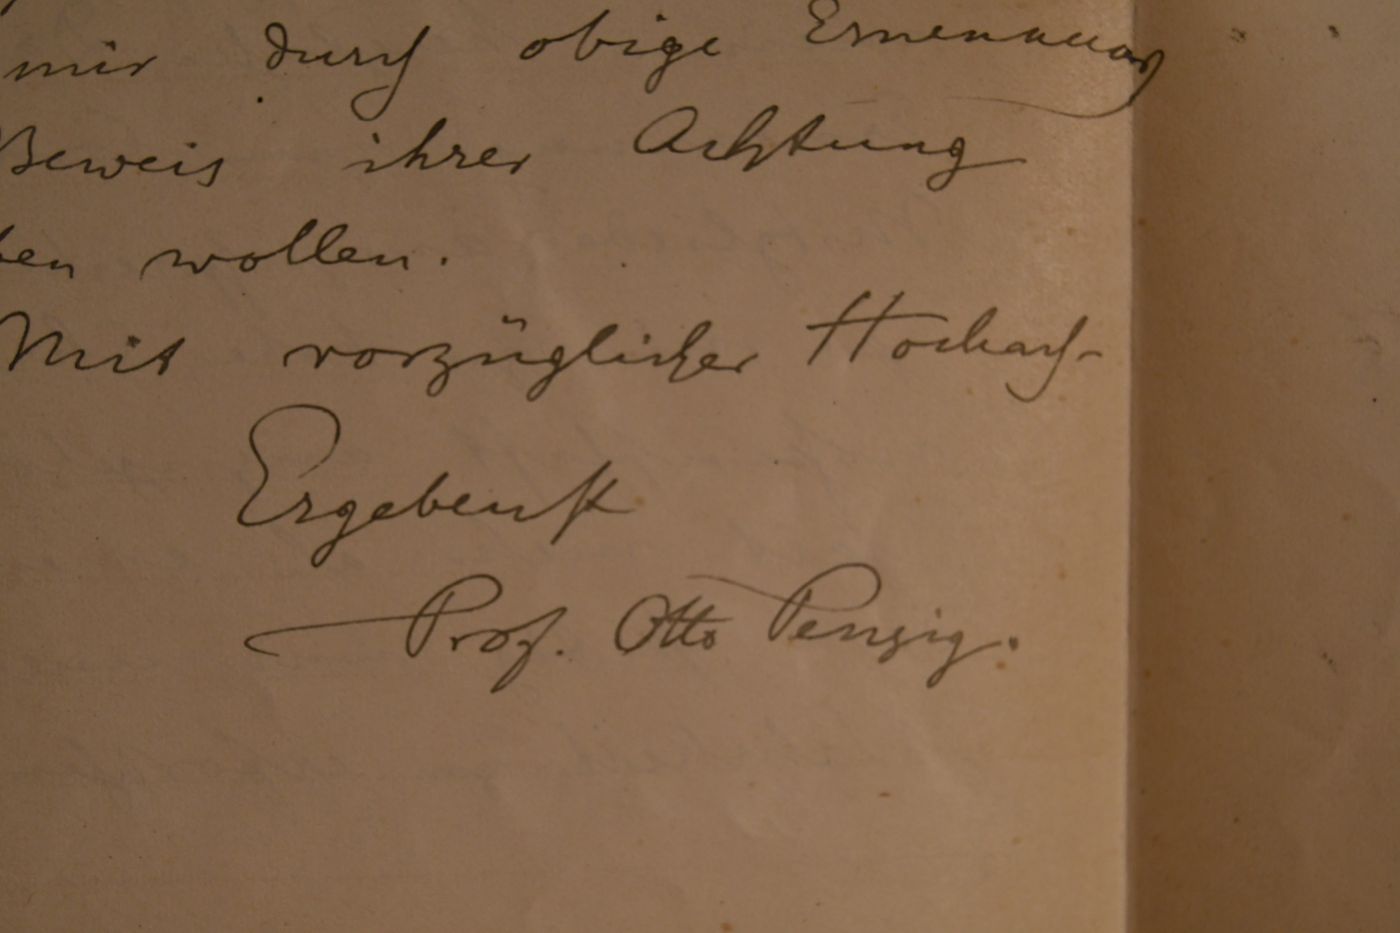 mir durch obige Ernennung
Beweis ihrer Achtung
ben wollen.
Mit vorzüglicher Hochach-
Ergebenst
Prof. Otto Penzig.